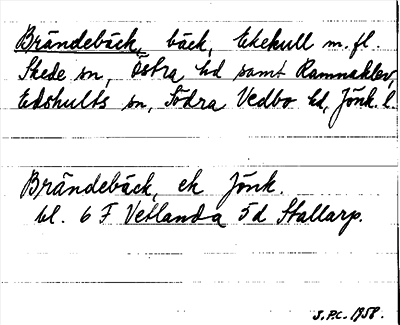 Brändebäck, bäck, Ekekull m.fl.
Skede sn, Östra hd samt Ramnaklev,
Edshults sn, Södra Vedbo hd, Jönk. l.
Brändebäck, ek Jönk.
bl. 6 F Vetlanda 5d Stallarp.
J.P.C. 1958.